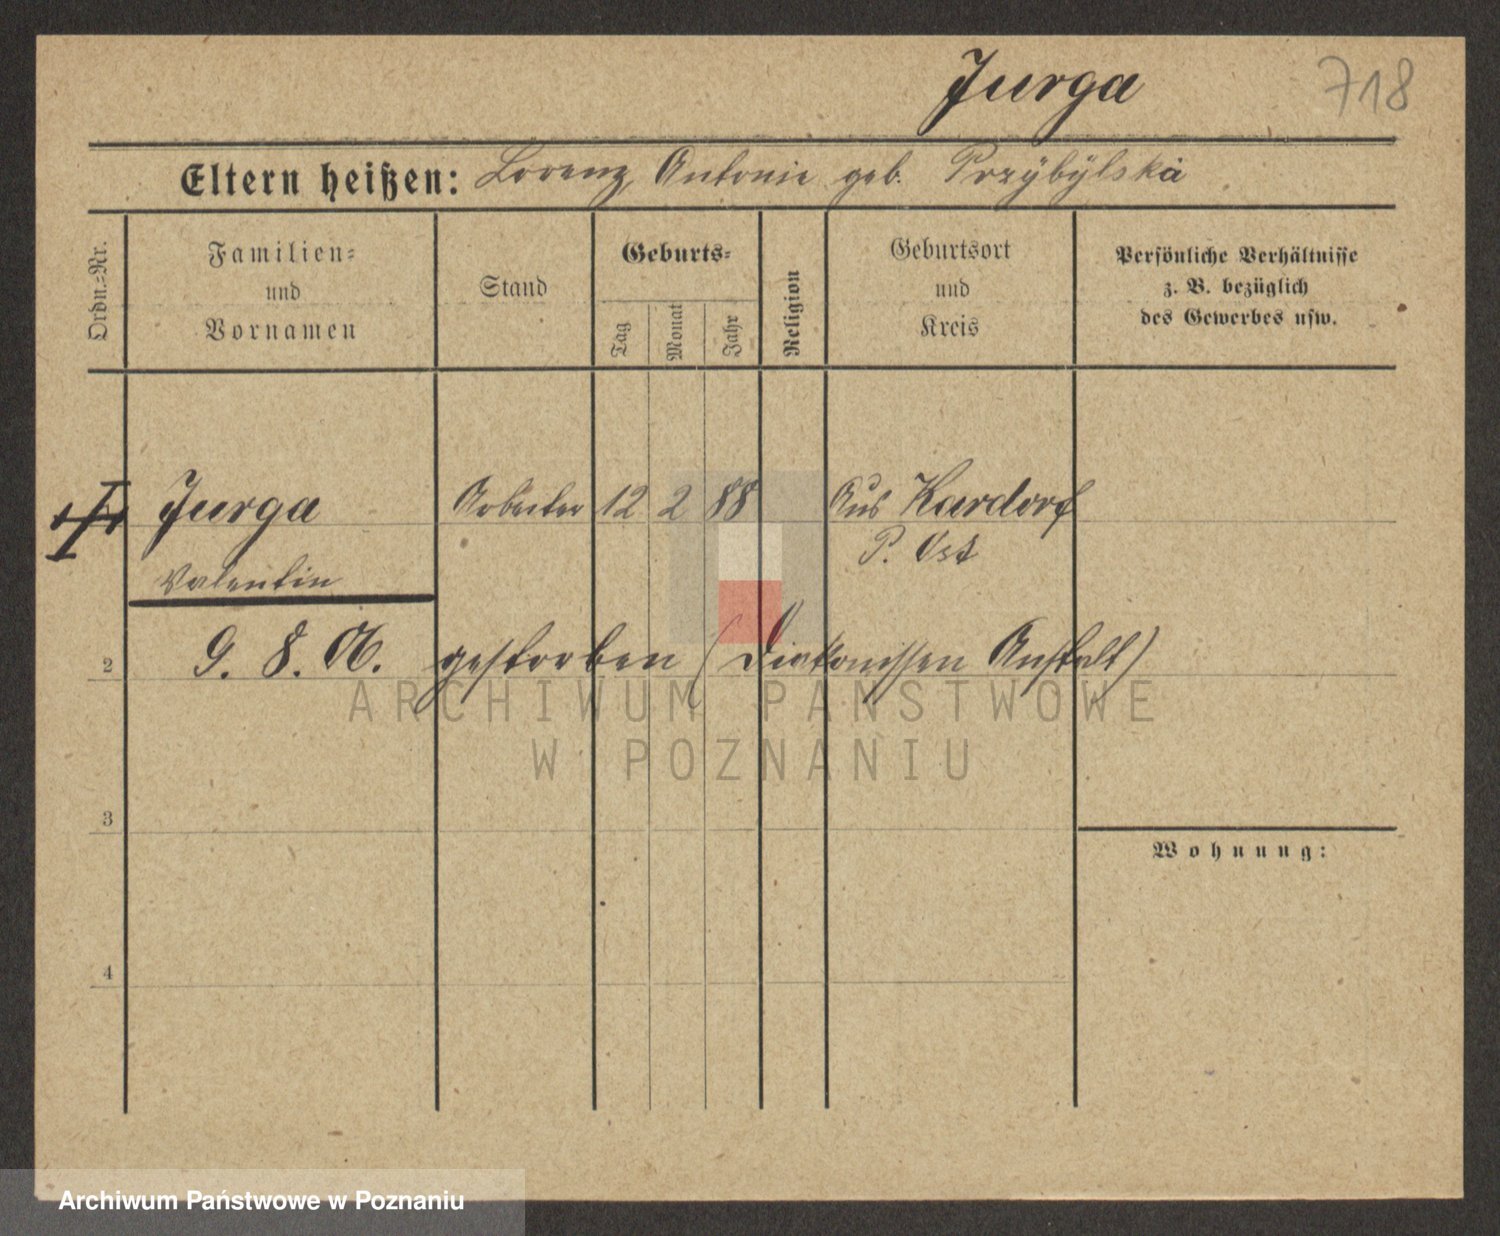 Jurga 718
Eltern heißen: Lorenz, Antonie geb. Przybylska
Ordn.-Nr.
Familien-
und
Vornamen
Stand
Geburts-
Tag
Monat
Jahr
Religion
Geburtsort
und
Kreis
Persönliche Verhältnisse
z. B. bezüglich
des Gewerbes usw.
Jurga Arbeiter 12 2 88 Aus Kardorf
P. Ost
Valentin
2 9. 8. 06. gestorben (Diakonissen Anstalt)
ARCHIWUM PAŃSTWOWE
W POZNANIU
3
Wohnung:
4
Archiwum Państwowe w Poznaniu